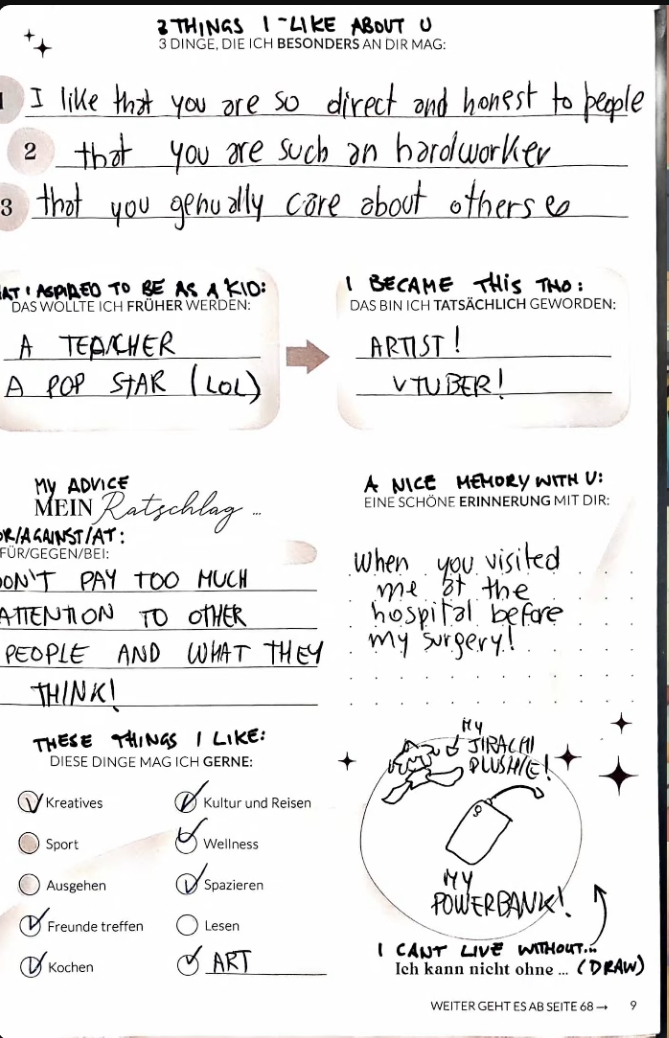 3 THINGS I LIKE ABOUT U
3 DINGE, DIE ICH BESONDERS AN DIR MAG:
1 I like that you are so direct and honest to people
2 that you are such an hardworker
3 that you genually care about others
AT I ASPIRED TO BE AS A KID:
DAS WOLLTE ICH FRÜHER WERDEN:
A TEACHER
A POP STAR (LOL)
I BECAME THIS THO:
DAS BIN ICH TATSÄCHLICH GEWORDEN:
ARTIST!
VTUBER!
MY ADVICE
MEIN Ratschlag ...
OR/AGAINST/AT:
FÜR/GEGEN/BEI:
DON'T PAY TOO MUCH
ATTENTION TO OTHER
PEOPLE AND WHAT THEY
THINK!
A NICE MEMORY WITH U:
EINE SCHÖNE ERINNERUNG MIT DIR:
When you visited
me at the
hospital before
my surgery!
THESE THINGS I LIKE:
DIESE DINGE MAG ICH GERNE:
Kreatives
Kultur und Reisen
Sport
Wellness
Ausgehen
Spazieren
Freunde treffen
Lesen
Kochen
ART
MY
JIRACHI
PLUSHIE!
MY
POWERBANK!
I CANT LIVE WITHOUT...
Ich kann nicht ohne ... (DRAW)
WEITER GEHT ES AB SEITE 68 → 9